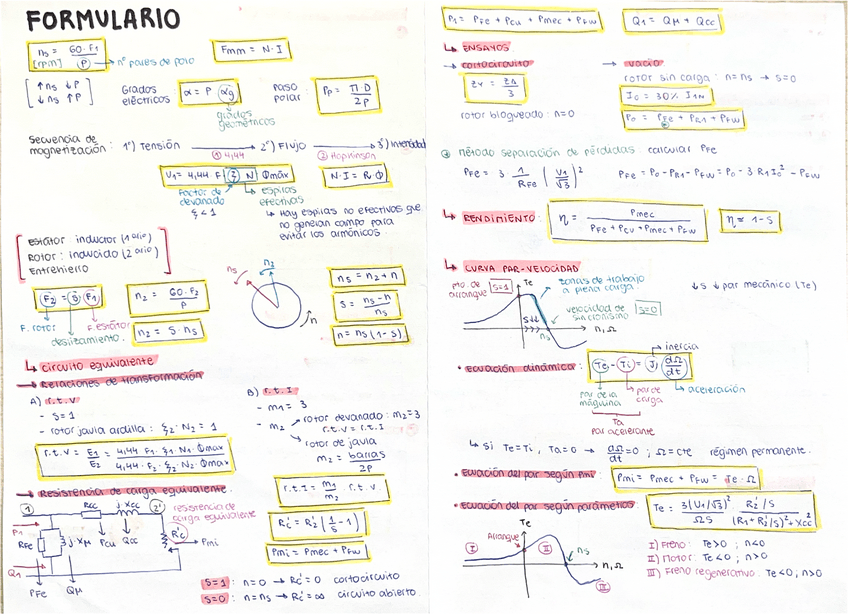 FORMULARIO
ns = 60·F1 / P
[rpm]
nº pares de polo
Fmm = N·I
[↑ns ↓P
↓ns ↑P]
Grados eléctricos:
α = P αg
grados geométricos
Paso polar:
Pp = Π·D / 2P
Secuencia de magnetización:
1º) Tensión → 2º) Flujo → 3º) Intensidad
① 4,44
② Hopkinson
V1 = 4,44 F ξ N Φmáx
N·I = R·Φ
Factor de devanado
ξ < 1
espiras efectivas
↳ Hay espiras no efectivas que
no generan campo para
evitar los armónicos.
Estátor inductor (1ario)
Rotor: inducido (2ario)
Entrehierro
F2 = S·F1
F. rotor
F. estátor
deslizamiento.
n2 = 60·F2 / P
n2 = S·ns
ns
n2
n
ns = n2+n
S = ns-n / ns
n = ns(1-S)
↳ Circuito equivalente
→ Relaciones de transformación
A) r.t.V
- S=1
- rotor javia ardilla: ξ2·N2 = 1
r.t.V = E1 / E2 = 4,44·F1·ξ1·N1·Φmax / 4,44·F2·ξ2·N2·Φmax
B) r.t.I
- m1 = 3
- m2
rotor devanado: m2=3
r.t.V = r.t.I
rotor de javia
m2 = barras / 2P
r.t.I = m1 / m2 · r.t.V
→ Resistencia de carga equivalente.
① Rcc j·Xcc ②'
resistencia de
carga equivalente
P1
RFe
jXμ
Pcu
Qcc
Rc'
Pmi
Q1
PFe
Qμ
Rc' = R2'(1/S - 1)
Pmi = Pmec + PFW
S=1: n=0 → Rc'=0 cortocircuito
S=0: n=ns → Rc'=∞ circuito abierto.
P1 = PFe + Pcu + Pmec + PFW
Q1 = Qμ + Qcc
↳ ENSAYOS
→ cortocircuito
→ vacío
rotor sin carga: n=ns → s=0
I0 = 30% I1N
rotor bloqueado: n=0
P0 = PFe + PR1 + PFW
método separación de pérdidas calcular PFe
PFe = 3· 1/RFe (V1/√3)²
PFe = P0 - PR1 - PFW = P0 - 3 R1 I0² - PFW
↳ RENDIMIENTO:
η = Pmec / PFe + Pcu + Pmec + PFW
η ≈ 1-S
↳ CURVA PAR-VELOCIDAD
Pto. de arranque
S=1
Te
zonas de trabajo
a plena carga
velocidad de
sincronismo
S=0
ns
n, Ω
↓s ↓par mecánico (Te)
• Ecuación dinámica: Te - Ti = J dΩ/dt
inercia
par de la máquina
par de carga
aceleración
Ta
par acelerante
↳ Si Te=Ti, Ta=0 → dΩ/dt=0; Ω=cte régimen permanente.
• Ecuación del par según Pmi: Pmi = Pmec + PFW = Te·Ω
• Ecuación del par según parámetros: Te = 3(V1/√3)² / ΩS · R2'/S / (R1+R2'/S)²+Xcc²
Te
Arranque
I
II
III
ns
n, Ω
I) Freno: Te>0; n<0
II) Motor: Te<0; n>0
III) Freno regenerativo: Te<0, n>0